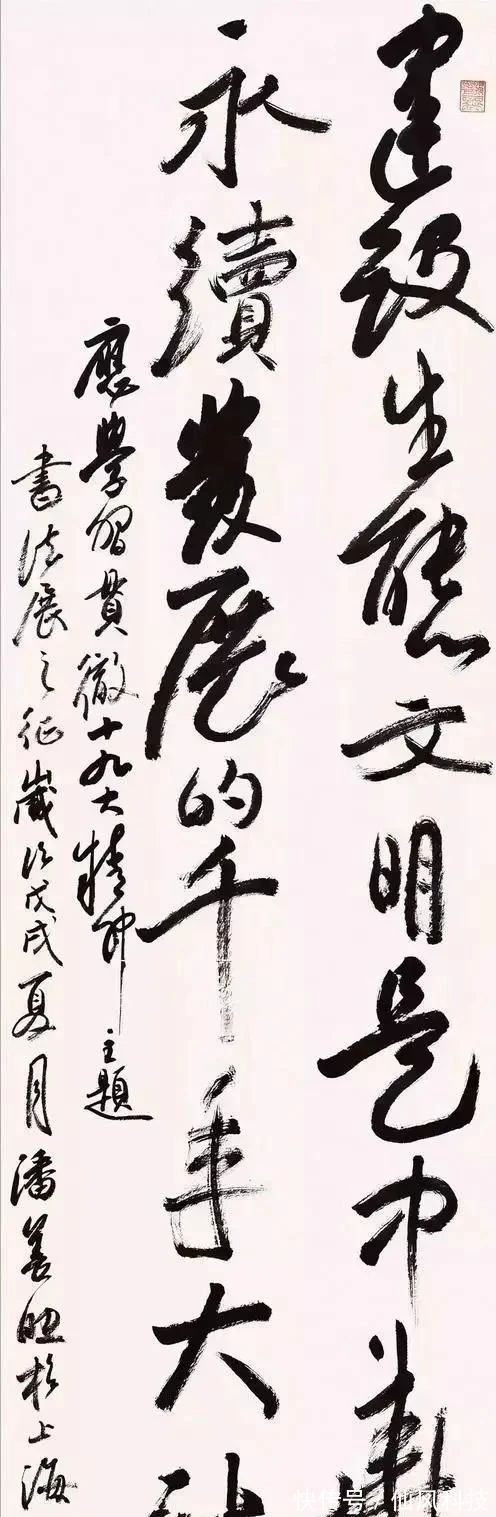 建設生態文明是中華
永續發展的千年大
應學習貫徹十九大精神主題
書法展之征歲次戊戌夏月潘善助於上海
快传号/仙风科技